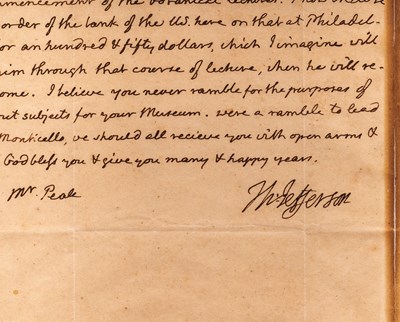 of the botanical lectures. I now inclose
order of the bank of the US. here on that at Philadel-
for an hundred & fifty dollars, which I imagine will
him through that course of lecture, when he will re-
ome. I believe you never ramble for the purposes of
subjects for your Museum. were a ramble to lead
Monticello, we should all recieve you with open arms &
God bless you & give you many & happy years.
Mr. Peale
Th: Jefferson